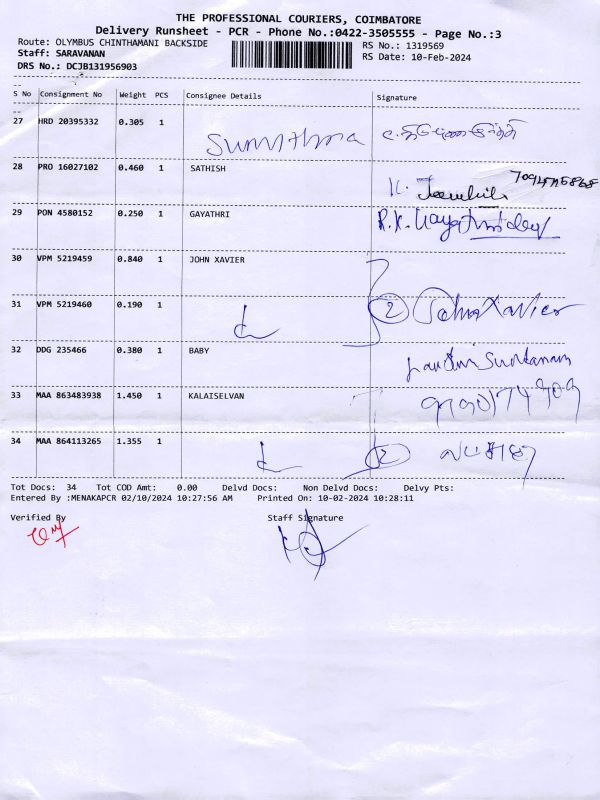 THE PROFESSIONAL COURIERS, COIMBATORE
Delivery Runsheet - PCR - Phone No.:0422-3505555 - Page No.:3
Route: OLYMBUS CHINTHAMANI BACKSIDE RS No.: 1319569
Staff: SARAVANAN RS Date: 10-Feb-2024
DRS No.: DCJB131956903
S No Consignment No Weight PCS Consignee Details Signature
27 HRD 20395332 0.305 1
28 PRO 16027102 0.460 1 SATHISH
K.
29 PON 4580152 0.250 1 GAYATHRI R.K.
30 VPM 5219459 0.840 1 JOHN XAVIER
31 VPM 5219460 0.190 1 2 John Xavier
32 DDG 235466 0.380 1 BABY
33 MAA 863483938 1.450 1 KALAISELVAN
34 MAA 864113265 1.355 1 2
Tot Docs: 34 Tot COD Amt: 0.00 Delvd Docs: Non Delvd Docs: Delvy Pts:
Entered By :MENAKAPCR 02/10/2024 10:27:56 AM Printed On: 10-02-2024 10:28:11
Verified By Staff Signature